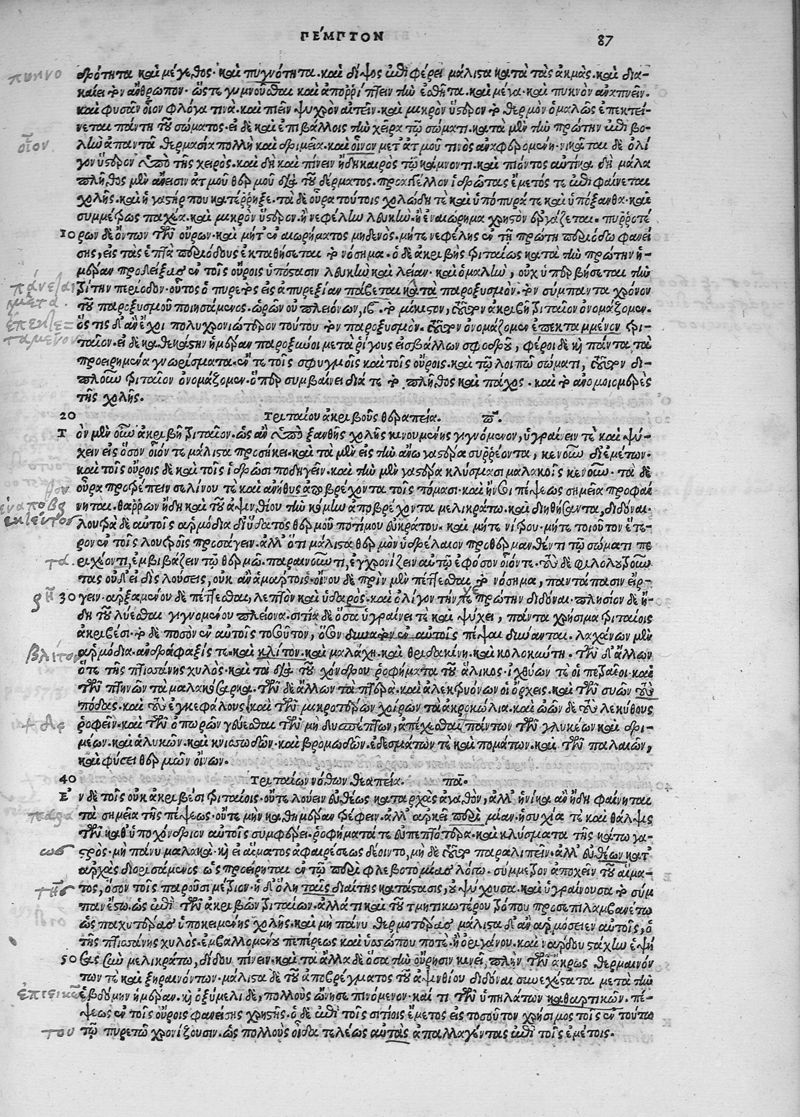 ΠΕΜΠΤΟΝ 87
πυκνο
δρότητα καὶ μέγεθος· καὶ πυγνότητα. καὶ δίψος ἐπιφέρει μάλιστα κατὰ τὰς ἀκμάς. καὶ δια-
καίει τὸν ἄνθρωπον· ὥστε γυμνοῦσθαι καὶ ἀπορρίπτειν τὴν ἐσθῆτα· καὶ μέγα· καὶ πυκνὸν ἀναπνεῖν·
καὶ φυσᾶν οἷον φλόγα τινὰ· καὶ πιεῖν ψυχρὸν αἰτεῖν· καὶ μικρὸν ὕστερον τὸ θερμὸν ὁμαλῶς ἐπεκτεί-
νεται πάντη τοῦ σώματος· εἰ δὲ καὶ ἐπιβάλλοις τὴν χεῖρα τῷ σώματι· κατὰ μὲν τὴν πρώτην ἐπιβο-
οἷον
λὴν ἀπαντᾷ θερμασία πολλὴ καὶ δριμεῖα· καὶ οἷνον μετ' ἀτμοῦ τινος ἀναφερομένη· νικᾶται δὲ ὀλί-
γον ὕστερον ὑπὸ τῆς χειρός· καὶ δὴ καὶ πίνειν ἤδη καιρὸς τῷ κάμνοντι· καὶ πιόντος αὐτίκα δὴ μάλα
πλῆθος μὲν ἄνεισιν ἀτμοῦ θερμοῦ διὰ τοῦ δέρματος· προαγγέλλον ἱδρῶτας ἔμετός τε ἐπιφαίνεται
χολῆς· καὶ ἡ γαστήρ που κατέρρηξε· τὰ δὲ οὖρα τούτοις χολώδη τὲ καὶ ὑπόπυρά τε καὶ ὑπόξανθα· καὶ
συμμέτρως παχέα· καὶ μικρὸν ὕστερον· ἢ νεφέλην λευκὴν· ἢ ἐναιώρημα χρηστὸν ἐργάζεται· πυρροτέ
10 ρων δὲ ὄντων τῶν οὔρων· καὶ μήτ' ἐναιωρήματος μηδενὸς· μήτε νεφέλης ἐν τῇ πρώτῃ περιόδῳ φανεί
σης, εἰς τὰς ἑπτὰ περιόδους ἐκταθήσεται τὸ νόσημα· ὁ δὲ ἀκριβὴς τριταῖος κατὰ τὴν πρώτην ἡ-
μέραν προδείξας ἐν τοῖς οὔροις ὑπόστασιν λευκὴν καὶ λείαν· καὶ ὁμαλὴν, οὐχ ὑπερβήσεται τὴν
τρίτην περίοδον· οὗτος ὁ πυρετὸς εἰς ἀπυρεξίαν παύεται κατὰ παροξυσμὸν· τὸν σύμπαντα χρόνον
τοῦ παροξυσμοῦ ποιησάμενος· ὡρῶν οὐ πλειόνων, ιβ· τὸ μήκιστον, τοῦτον ἀκριβῆ τριταῖον ὀνομάζομεν·
ἐπεκτε=
ὅστις δ' ἂν ἔχοι πολυχρονιώτερον τούτου τὸν παροξυσμόν· τοῦτον ὀνομάζομεν ἐπεκταμμένον τρι-
ταμενον
ταῖον· εἰ δὲ καθ' ἑκάστην ἡμέραν παροξυσμοὶ μετὰ ῥίγους εἰσβάλλων σφοδροῦ, φέροι δὲ καὶ πάντα τὰ
προειρημένα γνωρίσματα· ἔν τε τοῖς σφυγμοῖς καὶ τοῖς οὔροις· καὶ τῷ λοιπῷ σώματι, τοῦτον δι-
πλοῦν τριταῖον ὀνομάζομεν· ὅπερ συμβαίνει διά τε τὸ πλῆθος καὶ πάχος· καὶ τὸ ἀνομοιομερὲς
τῆς χολῆς.
20 Τριταίου ἀκριβοῦς θεραπεία. π.
Τὸν μὲν οὖν ἀκριβῆ τριταῖον· ὡς ἂν ὑπὸ ξανθῆς χολῆς κινουμένης γιγνόμενον, ὑγραίνειν τὲ καὶ ψύ-
χειν εἰς ὅσον οἷόν τε μάλιστα προσήκει· καὶ τὰ μὲν εἰς τὴν ἄνω γαστέρα συρρέοντα, κενοῦν δι' ἐμέτων·
καὶ τοῖς οὔροις δὲ καὶ τοῖς ἱδρῶσι ποδηγεῖν· καὶ τὴν μὲν γαστέρα κλύσμασι μαλακοῖς κενοῦν· τὰ δὲ
οὖρα προτρέπειν σελίνου τε καὶ ἀνήθους ἀποβρέχοντα τοῖς πόμασι· καὶ ἤν τι πέψεως σημεῖα προφαί
νηται· θαρρῶν ἤδη καὶ τοῦ ἀψινθίου τὴν κόμην ἀποβρέχοντα μελικράτῳ· καὶ διηθοῦντα, διδόναι·
λουτρὰ δὲ αὐτοῖς ἁρμόδια δι' ὕδατος θερμοῦ ποτίμου εὐκράτου· καὶ μήτε νίτρου· μήτε τοιοῦτον ἕτε-
ρον ἐν τοῖς λουτροῖς προσάγειν· ἀλλ' ὅτι μάλιστα θερμὸν ὑδρέλαιον προθερμανθέντι τῷ σώματι πε
τα
ριχέοντι, ἐμβιβάζειν τῷ θερμῷ· παραινοῦντι, ἐγχρονίζειν αὐτῷ ἐφ' ὅσον οἷόν τε· τοὺς δὲ φιλολούτρου
τας οὐδ' εἰ δὶς λούσεις, οὐκ ἂν ἁμάρτοις· οἴνου δὲ πρὶν μὲν πέττεσθαι τὸ νόσημα, παντάπασιν εἴρ-
30 γειν· ἀρξαμένου δὲ πέττεσθαι, λεπτὸν καὶ ὑδαρὸς· καὶ ὀλίγον τὴν πρώτην διδόναι· πλησίον δὲ ἤ-
δη τοῦ λύεσθαι γιγνομένου πλείονα· σιτία δὲ ὅσα ὑγραίνει τὲ καὶ ψύχει, πάντα χρήσιμα τριταίοις
ἀκριβέσι· τὸ δὲ ποσὸν ἐν αὐτοῖς τοσοῦτον, ὅσον πέψαι δύνανται. λαχάνων μὲν
βλίτον
ἁρμόδια ἀνδράφαξίς τε· καὶ κλίτον· καὶ μαλάχη· καὶ θριδακίνη· καὶ κολοκύντη· τῶν δ' ἄλλων
ὅ τε τῆς πτισάνης χυλὸς· καὶ τὰ διὰ τοῦ χόνδρου ῥοφήματα τοῦ ἄλικος· ἰχθύων τὲ οἱ πετραῖοι· καὶ
τῶν πτηνῶν τὰ μαλακόσαρκα· τῶν δὲ ἄλλων τὰ πτερά· καὶ ἀλεκτρυόνων οἱ ὄρχεις· καὶ τῶν συῶν τοὺς
πόδας· καὶ τοὺς ἐγκεφάλους· καὶ τῶν μικροτέρων χοίρων τὰ ἀκροκώλια· καὶ ὠῶν δὲ τοὺς λεκύθους
ῥοφεῖν· καὶ τῶν ὀπωρῶν γεύεσθαι τῶν μὴ δυσπέπτων, ἀπέχεσθαι πάντων τῶν γλυκέων καὶ δρι-
μέων· καὶ ἁλυκῶν· καὶ κνισσωδῶν· καὶ βρομωδῶν· ἐδεσμάτων τὲ καὶ πομάτων· καὶ τῶν παλαιῶν,
καὶ φύσει θερμῶν οἴνων.
40 Τριταίων νόθων θεραπεία. πα.
Ἐν δὲ τοῖς οὐκ ἀκριβέσι τριταίοις· οὔτε λούειν εὐθέως καταρχὰς ἀγαθὸν, ἀλλ' ἡνίκα ἂν ἤδη φαίνηται
τὰ σημεῖα τῆς πέψεως· οὔτε μὴν καθ' ἡμέραν τρέφειν· ἀλλ' ἀρκεῖ παρὰ μίαν· ἡσυχία τὲ καὶ θάλψις
τῶν καθ' ὑποχόνδριον αὐτοῖς συμφέρει· ῥοφήματά τε εὐπεπτότερα· καὶ κλύσματα τῆς κάτω γα-
στρὸς· μὴ πάνυ μαλακὰ· κἢ εἰ αἵματος ἀφαιρέσεως δέοιντο, μὴ δὲ τοῦτον παραλιπεῖν· ἀλλ' εὐθέων κατ'
ἀρχὰς διορισάμενος ὡς προείρηται ἐν τῷ περὶ φλεβοτομίας λόγῳ· σύμμετρον ἀποχεῖν τοῦ αἵμα-
τος, ὅσον τοῖς παροῦσι μέτριον· ἡ δ' ὅλη ταῖς διαίτης κατάστασις, οὐ ψύχουσα· καὶ ὑγραίνουσα τὸ σύμ
παν ἔστω· ὡς ἐπὶ τῶν ἀκριβῶν τριταίων· ἀλλά τι καὶ τμητικωτέρου τρόπου προσεπιλαμβανέτω
ὡς παχυτέρας ὑποκειμένης χολῆς· καὶ μὴ πάνυ θερμοτέρας· μάλιστα δ' ἂν ἁρμόσειεν αὐτοῖς, ὁ
τῆς πτισάνης χυλὸς· ἐμβαλλομένου πεπέρεως καὶ ὑσσώπου ποτὲ· ἢ ὀριγάνου· καὶ νάρδου στάχυν ἑψή
50 σας σὺν μελικράτῳ, δίδου πίνειν· καὶ τὰ ἄλλα δὲ ὅσα τὴν οὔρησιν κινεῖ, πλὴν τῶν ἄκρως θερμαινόν
των τὲ καὶ ξηραινόντων· μάλιστα δὲ τοῦ ἀποβρέγματος τοῦ ἀψινθίου διδόναι συνεχέστατα μετὰ τὴν
ἑβδόμην ἡμέραν· καὶ ὀξύμελι δὲ, πολλοὺς ὤνησε πινόμενον· καί τι τῶν ὑπηλάτων καθαρτικῶν· πέ-
ψεως ἐν τοῖς οὔροις φανείσης χρηστῆς· ὁ δὲ ἐπὶ τοῖς σιτίοις ἔμετος εἰς τοσοῦτον χρήσιμος τοῖς ἐν τούτῳ
του
τῷ πυρετῷ χρονίζουσιν· ὡς πολλοὺς οἶδα τελέως αὐτὰς ἀπαλλαγέντας ἐπὶ τοῖς ἐμέτοις·